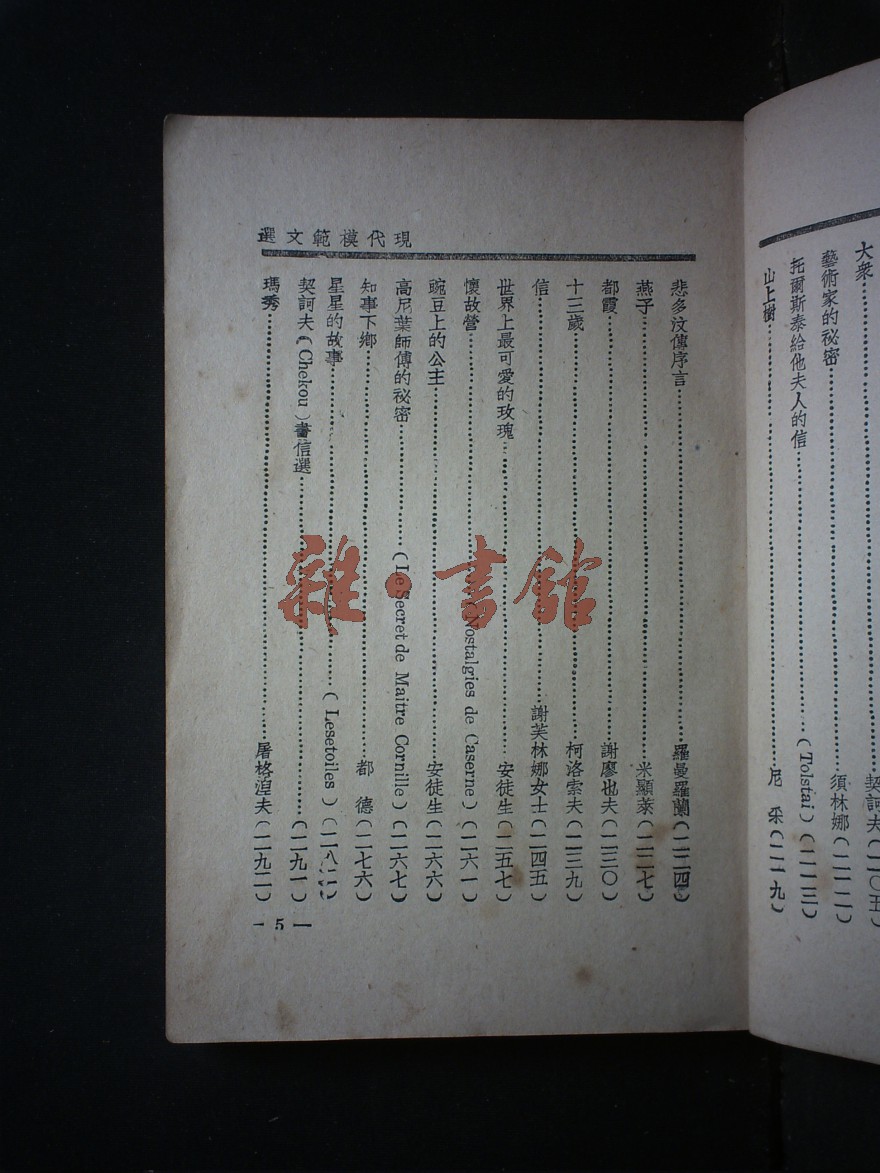 大衆……契訶夫(二〇五
藝術家的祕密……須林娜(二一二)
托爾斯泰給他夫人的信……(Tolstai)(二一三)
山上樹……尼采(二一九)
現代模範文選
悲多汶傳序言……羅曼羅蘭(二二四)
燕子……米顯萊(二二七)
都霞……謝廖也夫(二三〇)
十三歲……柯洛索夫(二三九)
信……謝芙林娜女士(二四五)
世界上最可愛的玫瑰……安徒生(二五七)
懷故營……Nostalgies de Caserne)(二六一)
豌豆上的公主……安徒生(二六六)
高尼葉師傅的祕密……(Le Secret de Maitre Cornille)(二六七)
知事下鄉……都德(二七六)
星星的故事……(Lesetoiles)(二八二)
契訶夫(Chekou)書信選……(二九一)
瑪秀……屠格涅夫(二九二)
— 5 —
雜·書館